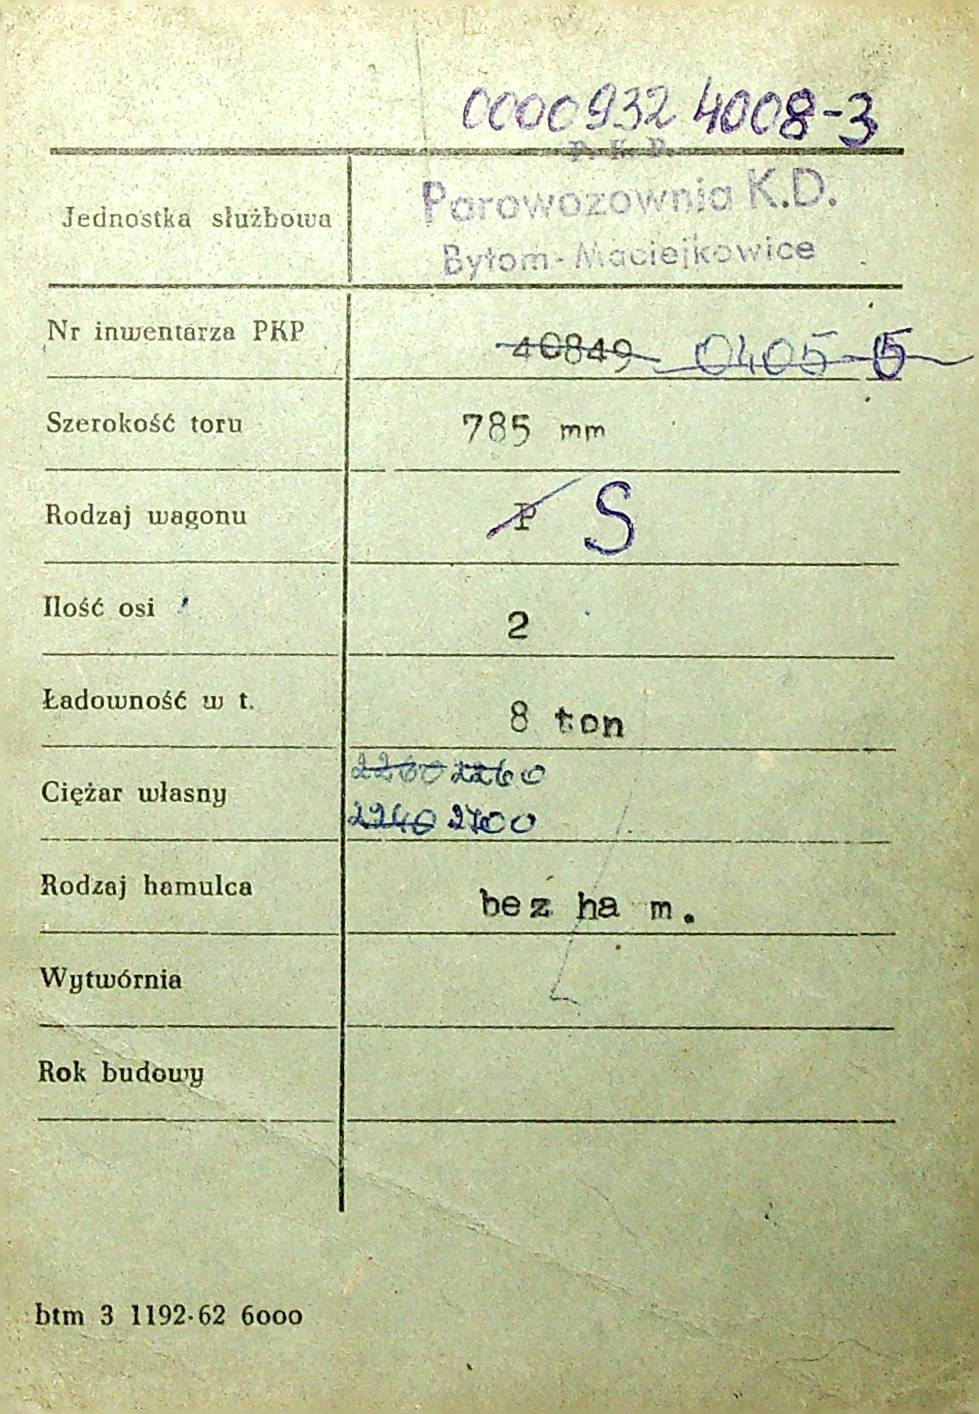 0000932 4008-3
P. K. P.
Jednostka służbowa Parowozownia K.D.
Bytom-Maciejkowice
Nr inwentarza PKP 40849 0405-5
Szerokość toru 785 mm
Rodzaj wagonu P S
Ilość osi 2
Ładowność w t. 8 ton
Ciężar własny 2260 2260
2240 2700
Rodzaj hamulca bez ha m.
Wytwórnia
Rok budowy
btm 3 1192-62 6000